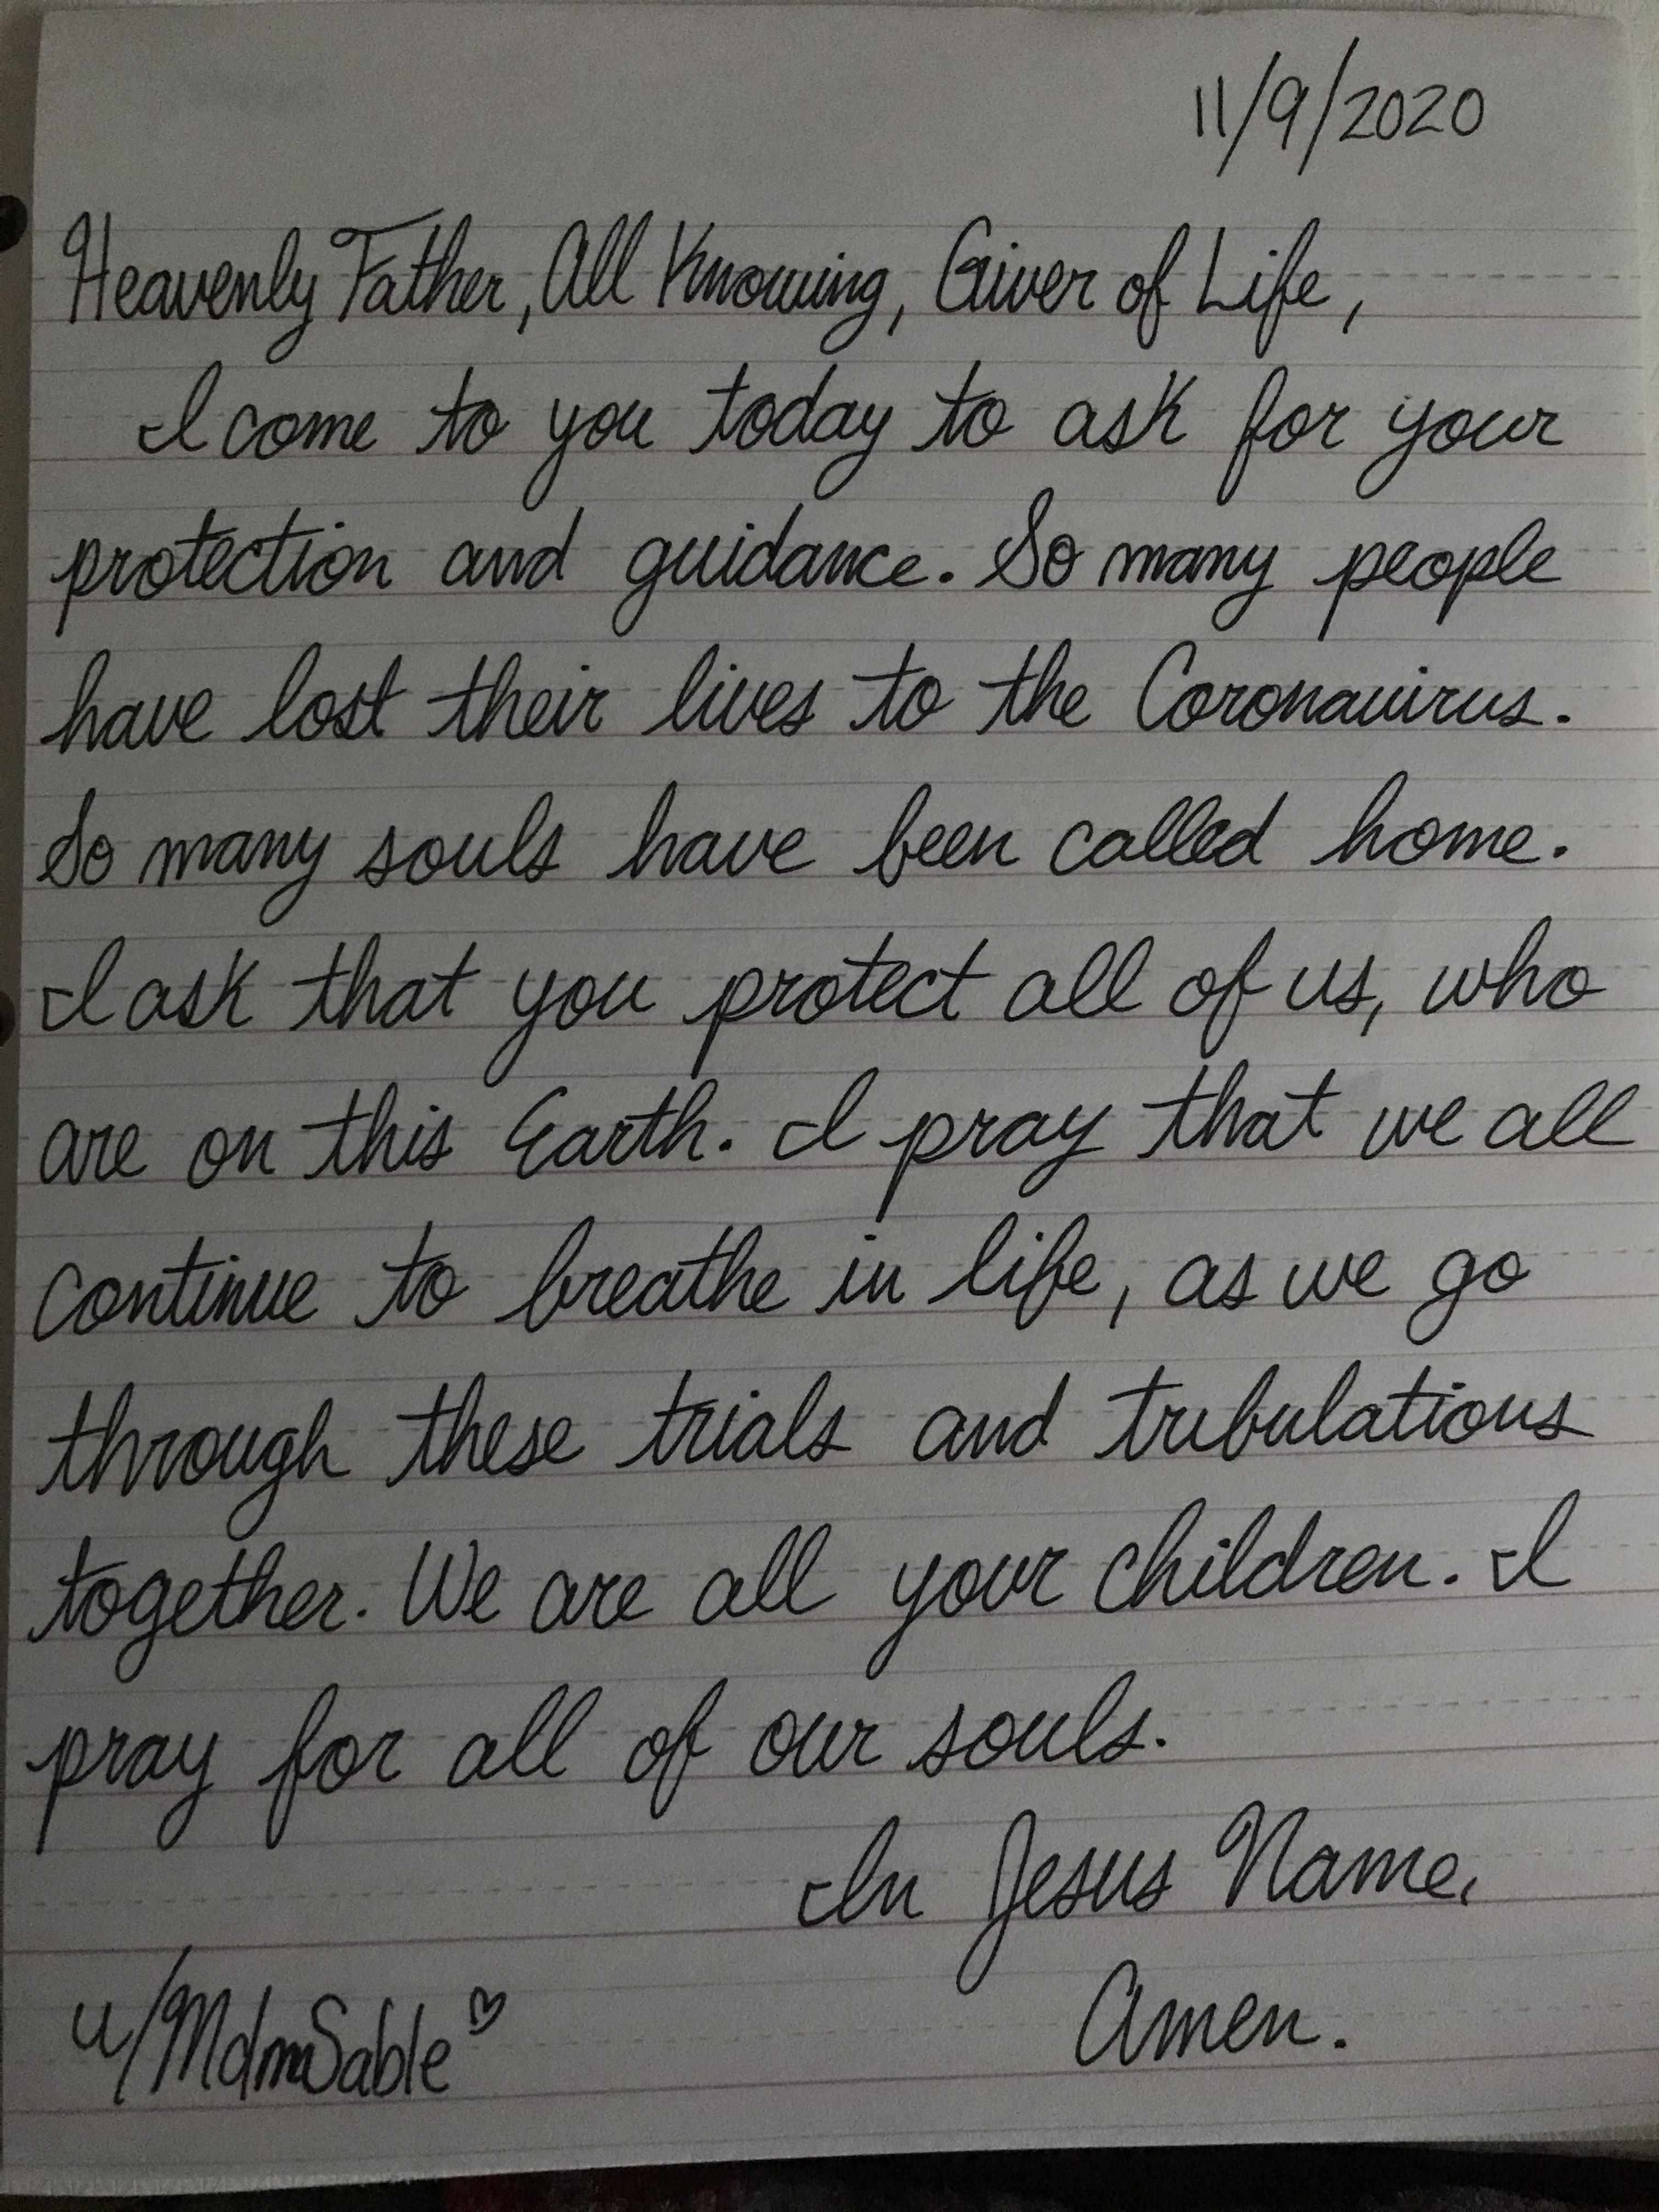 11/9/2020
Heavenly Father, All Knowing, Giver of Life,
I come to you today to ask for your
protection and guidance. So many people
have lost their lives to the Coronavirus.
So many souls have been called home.
I ask that you protect all of us, who
are on this Earth. I pray that we all
continue to breathe in life, as we go
through these trials and tribulations
together. We are all your children. I
pray for all of our souls.
In Jesus Name,
Amen.
u/MdmSable♡